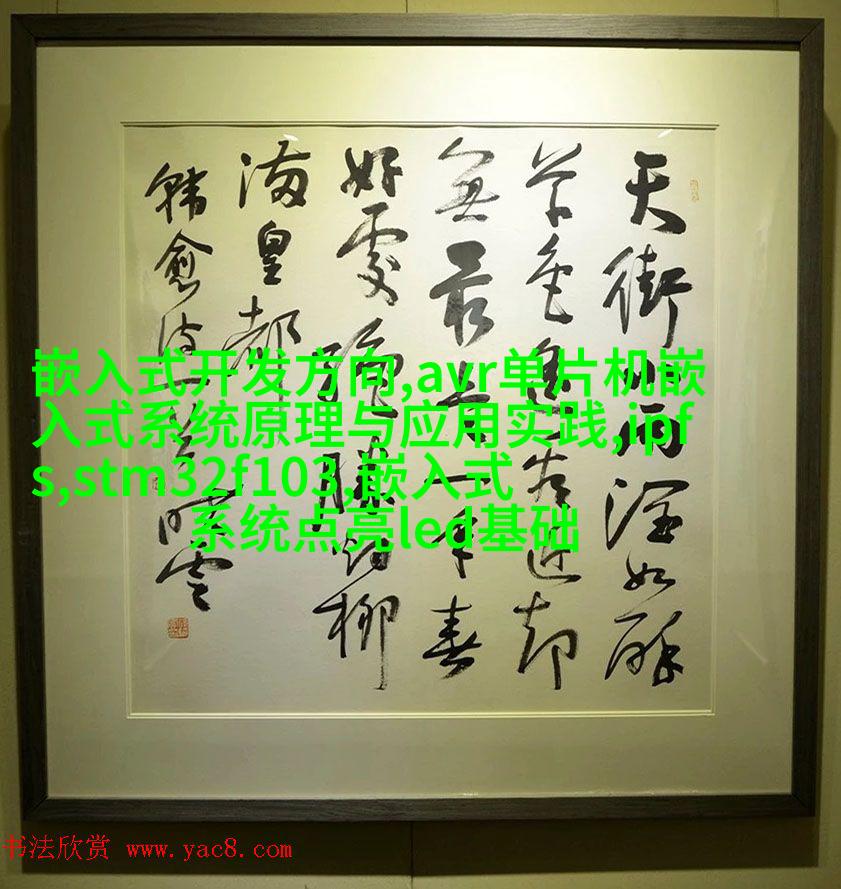 天街小雨润如酥
草色遥看近却
無最是一年春
好處绝勝烟柳
满皇都
韩愈诗一首
嵌入式开发方向,avr单片机嵌
入式系统原理与应用实践,ipf
s,stm32f103,嵌入式
系统点亮led基础
书法欣赏 www.yac8.com